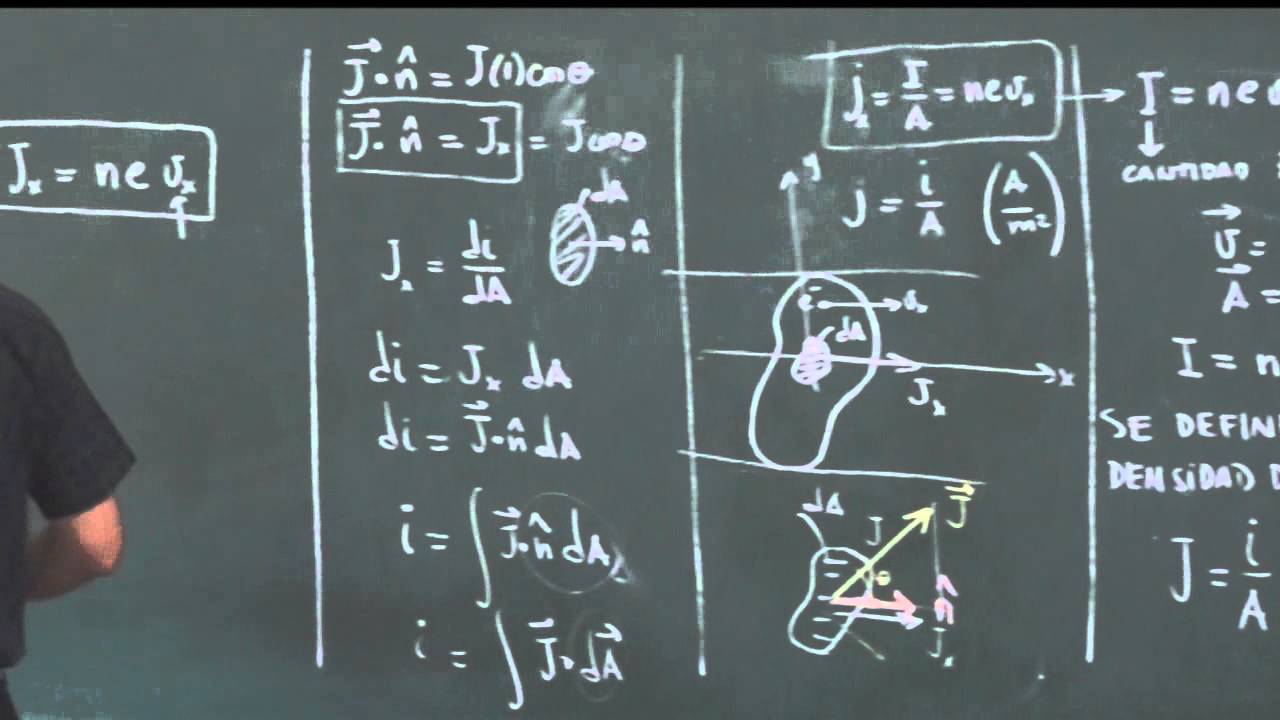 J_x = n e v_x
J⃗ · n̂ = J(1) cos θ
J⃗ · n̂ = J_x = J cos θ
dA
n̂
J_x = di/dA
di = J_x dA
di = J⃗ · n̂ dA
i = ∫ J⃗ · n̂ dA
i = ∫ J⃗ · dA⃗
j_x = I/A = n e v_x
j = i/A (A/m²)
y
e⁻ v_x
dA
x
J_x
dA
J J⃗
θ
n̂
J_x
I = n e
CANTIDAD
v⃗ =
A⃗ =
I = n
SE DEFIN
DENSIDAD D
J = i/A